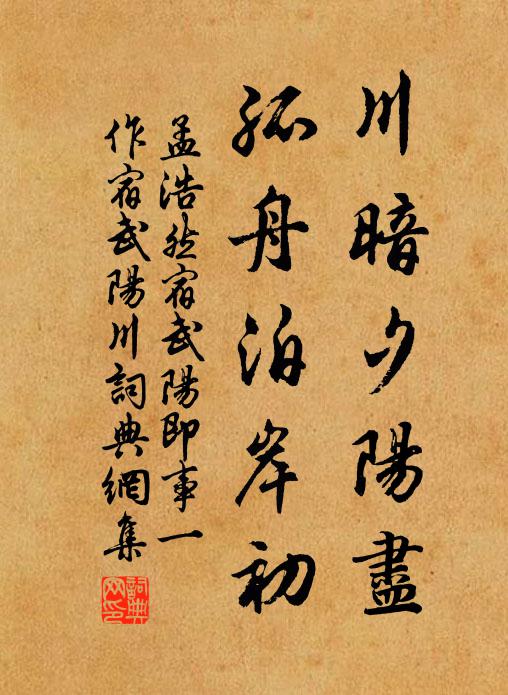 川暗夕陽盡
孤舟泊岸初
孟浩然宿武陽即事一
作宿武陽川詞典網集
詞典
网印